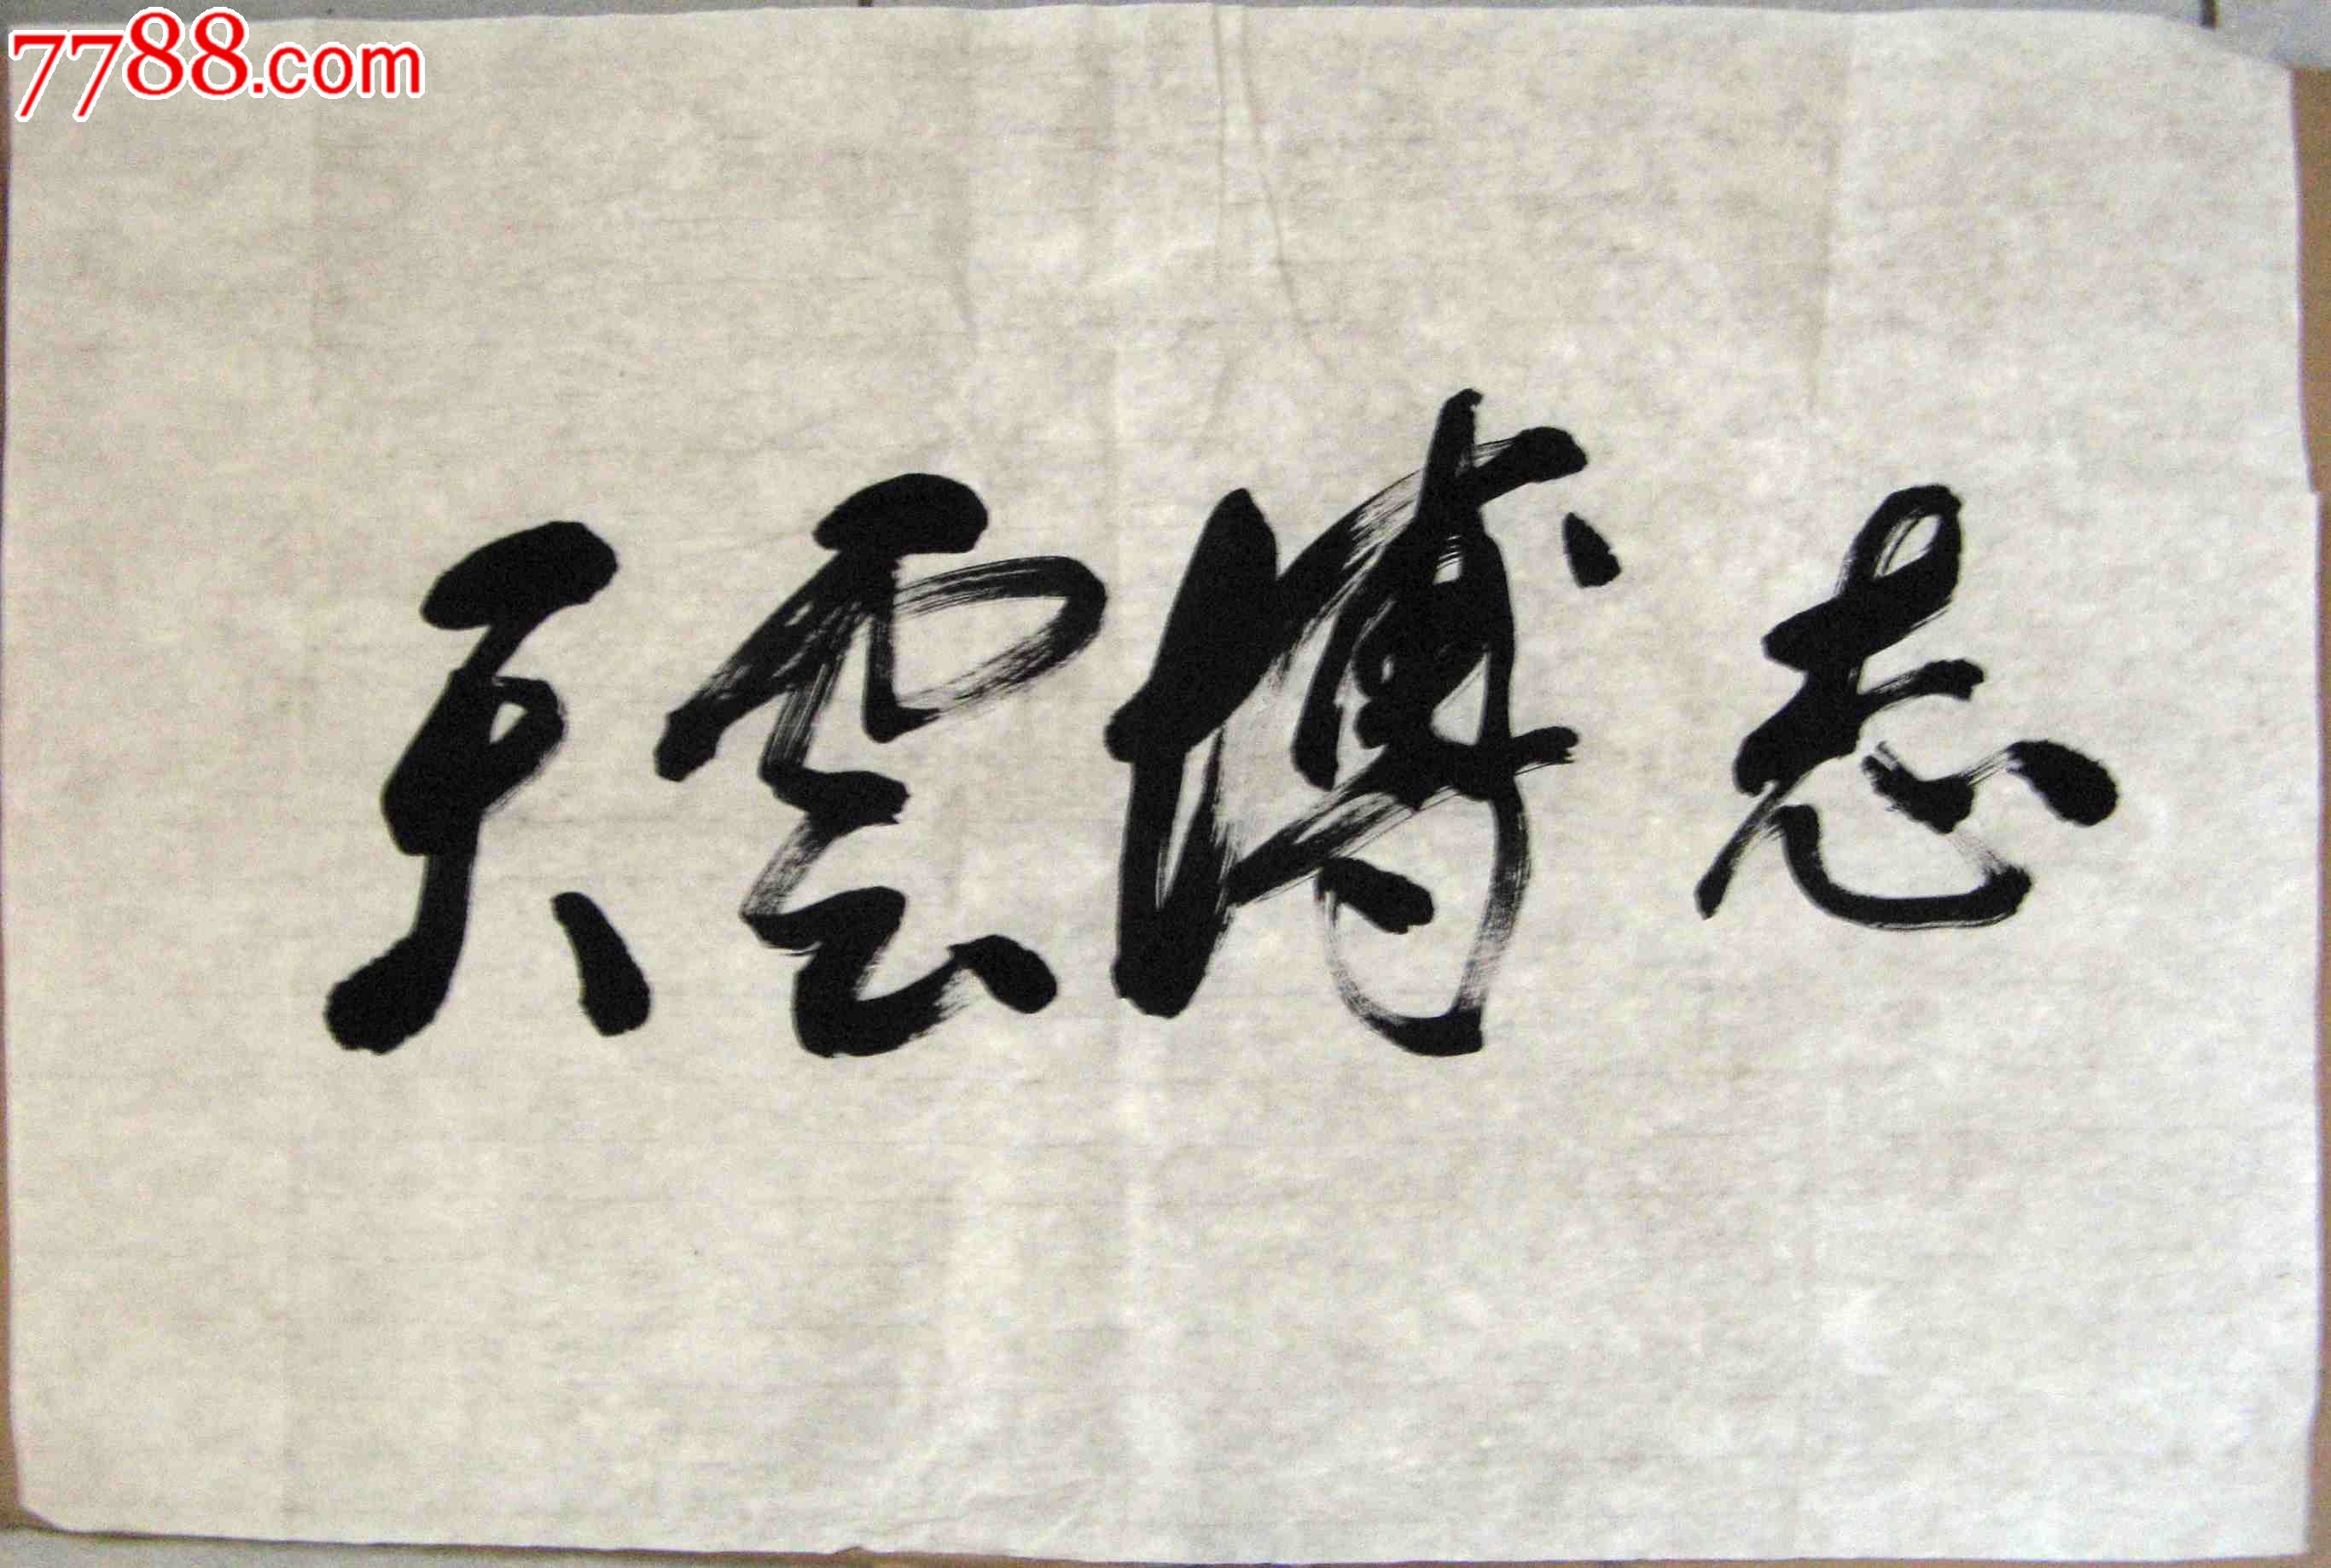 7788.com
志博雲天